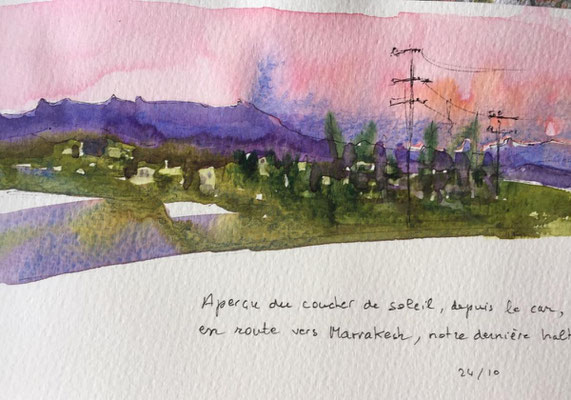 Aperçu du coucher de soleil, depuis le car,
en route vers Marrakesh, notre dernière halt
24/10